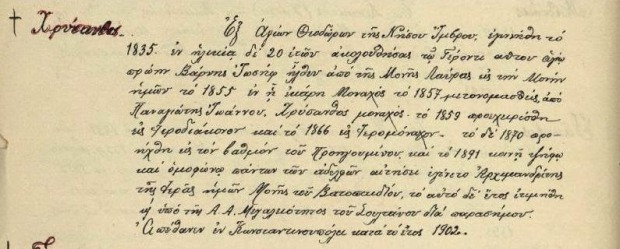 † Χρύσανθος. Ἐξ Ἁγίων Θεοδώρων τῆς Νήσου Ἴμβρου, ἐγενήθη τὸ
1835. ἐν ἡλικίᾳ δὲ 20 ἐτῶν ἀκολουθήσας τῷ Γέροντι αὐτοῦ ἁγίῳ
πρώην Βάρνης Ἰωσὴφ ἦλθεν ἀπὸ τῆς Μονῆς Λαύρας εἰς τὴν Μονὴν
ἡμῶν τὸ 1855 ἐν ᾗ ἐκάρη Μοναχὸς τὸ 1857 μετονομασθεὶς ἀπὸ
Παναγιώτης Ἰωάννου, Χρύσανθος μοναχός. τὸ 1859 προεχειρίσθη
εἰς Ἱεροδιάκονον καὶ τὸ 1866 εἰς Ἱερομόναχον. τὸ δὲ 1870 προ-
ήχθη εἰς τὸν βαθμὸν τοῦ Προηγουμένου. καὶ τὸ 1891 κοινῇ ψήφῳ
καὶ ὁμοφώνῳ πάντων τῶν ἀδελφῶν αἰτήσει ἐγένετο Ἀρχιμανδρίτης
τῆς Ἱερᾶς ἡμῶν Μονῆς τοῦ Βατοπεδίου, τὸ αὐτὸ δὲ ἔτος ἐτιμήθη
ὑπὸ τῆς Α. Α. Μεγαλειότητος τοῦ Σουλτάνου διὰ παρασήμου.
Ἀπέθανεν ἐν Κωνσταντινουπόλει κατὰ τὸ ἔτος 1902.